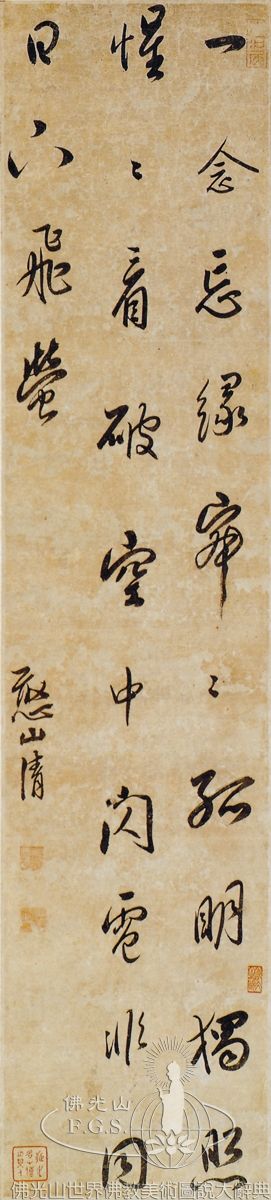 一念忘緣寂〻孤明獨照
惺〻看破空中閃電非同
日下飛螢
憨山清
佛光山
F.G.S.
佛光山世界佛教美術圖說大辭典